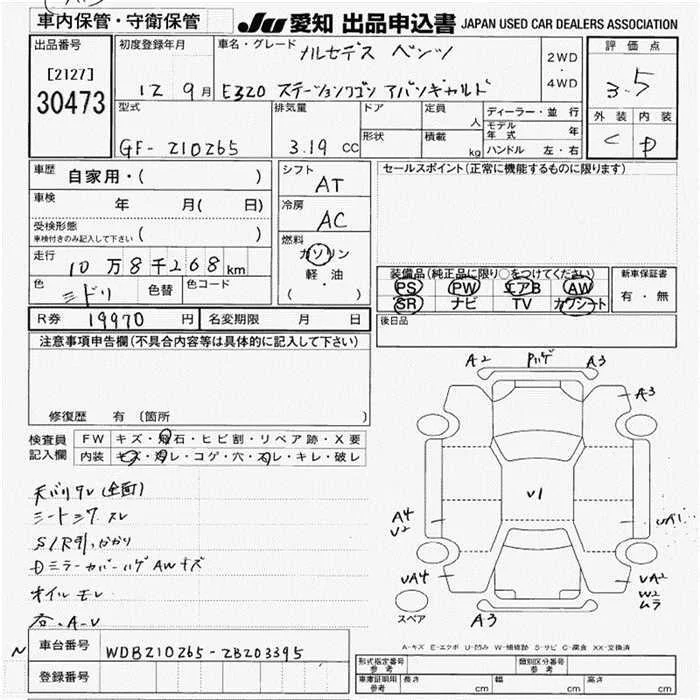 車内保管・守衛保管
JU 愛知 出品申込書 JAPAN USED CAR DEALERS ASSOCIATION
出品番号
[2127]
30473
初度登録年月
12 9月
車名・グレード
メルセデス ベンツ
E320 ステーションワゴン アバンギャルド
2WD
・
4WD
評価点
3.5
外装 内装
C D
型式
GF-210265
排気量
3.19 cc
ドア
形状
定員
人
積載
kg
ディーラー・並行
モデル年式 年
ハンドル 左・右
車歴 自家用・( )
車検 年 月( 日)
受検形態
車検付きのみ記入して下さい ( )
走行 10万8千268km
色 ミドリ 色替 色コード
シフト
AT
冷房
AC
燃料
ガソリン
軽・油
( ・ )
セールスポイント(正常に機能するものに限ります)
装備品(純正品に限り○をつけてください)
PS PW エアB AW
SR ナビ TV カワシート
新車保証書
有・無
後日品
R券 19970 円 名変期限 月 日
注意事項申告欄(不具合内容等は具体的に記入して下さい)
修復歴 有 (箇所 )
検査員
記入欄
FW キズ・飛石・ヒビ割・リペア跡・X要
内装 キズ・汚レ・コゲ・穴・スレ・キレ・破レ
天バリタレ(全面)
シートシワ スレ
S/R引っかかり
Dミラーカバーハゲ AWキズ
オイルモレ
各.A-U
A2 ハゲ A3
A3
V1
A4
V2
UA1
UA4
UA2
W2
ムラ
スペア
A3
A-キズ E-エクボ U-凹み W-補修跡 S-サビ C-腐食 XX-交換済
N 車台番号 WDB210265-2B203395
登録番号
形式指定番号
参考
類別区分番号
参考
車庫証明用
参考
長さ cm 幅 cm 高さ cm